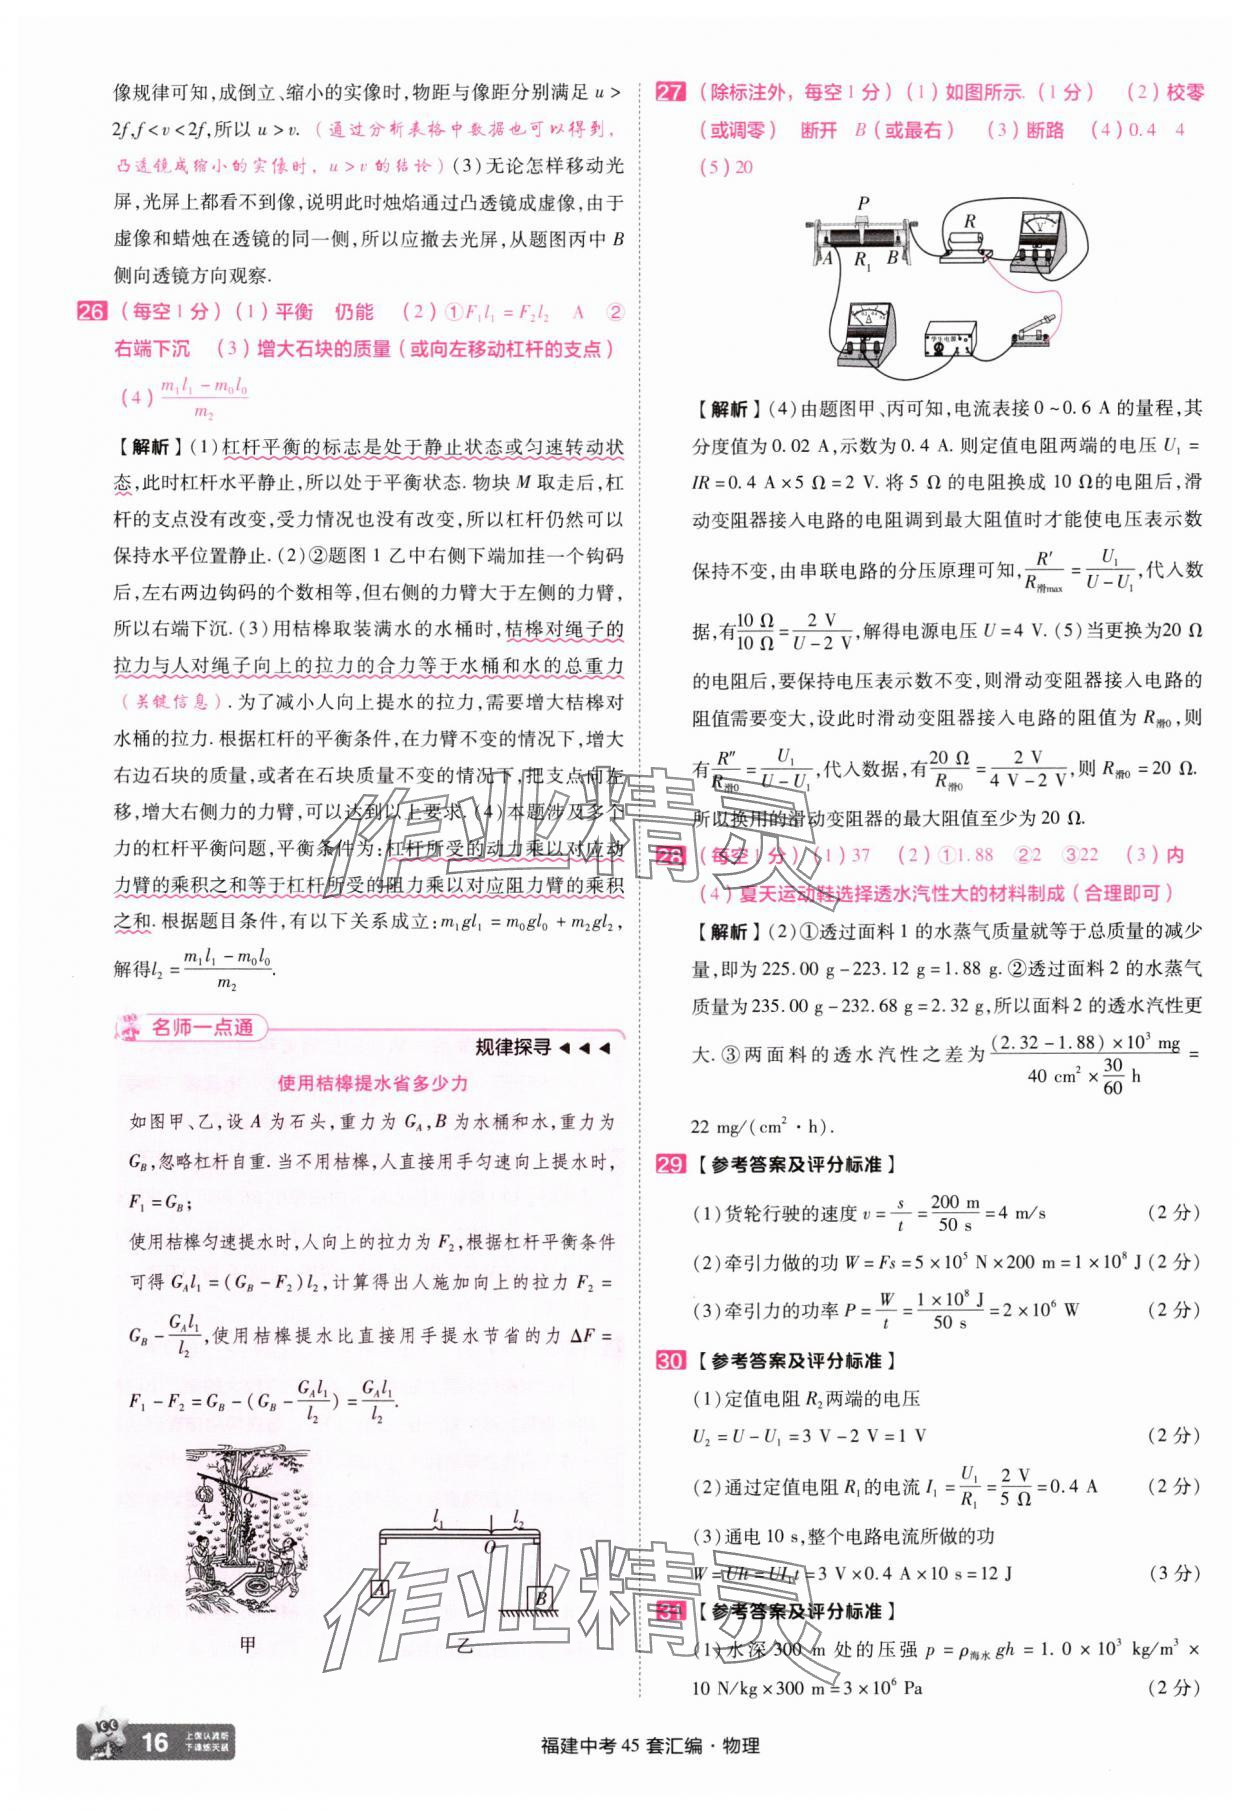 像规律可知,成倒立、缩小的实像时,物距与像距分别满足 u>
2f,f<v<2f,所以 u>v.(通过分析表格中数据也可以得到,
凸透镜成缩小的实像时，u>v的结论)(3)无论怎样移动光
屏,光屏上都看不到像,说明此时烛焰通过凸透镜成虚像,由于
虚像和蜡烛在透镜的同一侧,所以应撤去光屏,从题图丙中 B
侧向透镜方向观察.
26 (每空1分)(1)平衡 仍能 (2)①F₁l₁=F₂l₂ A ②
右端下沉 (3)增大石块的质量(或向左移动杠杆的支点)
(4) (m₁l₁-m₀l₀)/m₂
【解析】(1)杠杆平衡的标志是处于静止状态或匀速转动状
态,此时杠杆水平静止,所以处于平衡状态.物块 M 取走后,杠
杆的支点没有改变,受力情况也没有改变,所以杠杆仍然可以
保持水平位置静止.(2)②题图 1 乙中右侧下端加挂一个钩码
后,左右两边钩码的个数相等,但右侧的力臂大于左侧的力臂,
所以右端下沉.(3)用桔槔取装满水的水桶时,桔槔对绳子的
拉力与人对绳子向上的拉力的合力等于水桶和水的总重力
(关键信息).为了减小人向上提水的拉力,需要增大桔槔对
水桶的拉力.根据杠杆的平衡条件,在力臂不变的情况下,增大
右边石块的质量,或者在石块质量不变的情况下,把支点向左
移,增大右侧力的力臂,可以达到以上要求.(4)本题涉及多个
力的杠杆平衡问题,平衡条件为:杠杆所受的动力乘以对应动
力臂的乘积之和等于杠杆所受的阻力乘以对应阻力臂的乘积
之和.根据题目条件,有以下关系成立:m₁gl₁=m₀gl₀+m₂gl₂,
解得l₂=(m₁l₁-m₀l₀)/m₂.
名师一点通
规律探寻◀◀◀
使用桔槔提水省多少力
如图甲、乙,设 A 为石头,重力为 G_A,B 为水桶和水,重力为
G_B,忽略杠杆自重.当不用桔槔,人直接用手匀速向上提水时,
F₁=G_B;
使用桔槔匀速提水时,人向上的拉力为 F₂,根据杠杆平衡条件
可得 G_Al₁=(G_B-F₂)l₂,计算得出人施加向上的拉力 F₂=
G_B-G_Al₁/l₂,使用桔槔提水比直接用手提水节省的力 ΔF=
F₁-F₂=G_B-(G_B-G_Al₁/l₂)=G_Al₁/l₂.
A O B
甲
l₁ l₂ O A B
乙
27 (除标注外，每空1分)(1)如图所示.(1分) (2)校零
(或调零) 断开 B(或最右) (3)断路 (4)0.4 4
(5)20
P R V
A R₁ B
A 学生电源
【解析】(4)由题图甲、丙可知,电流表接 0~0.6 A 的量程,其
分度值为 0.02 A,示数为 0.4 A.则定值电阻两端的电压 U₁=
IR=0.4 A×5 Ω=2 V.将 5 Ω 的电阻换成 10 Ω的电阻后,滑
动变阻器接入电路的电阻调到最大阻值时才能使电压表示数
保持不变,由串联电路的分压原理可知,R′/R滑max=U₁/(U-U₁),代入数
据,有10 Ω/10 Ω=2 V/(U-2 V),解得电源电压 U=4 V.(5)当更换为20 Ω
的电阻后,要保持电压表示数不变,则滑动变阻器接入电路的
阻值需要变大,设此时滑动变阻器接入电路的阻值为 R滑0,则
有R″/R滑0=U₁/(U-U₁),代入数据,有20 Ω/R滑0=2 V/(4 V-2 V),则 R滑0=20 Ω.
所以换用的滑动变阻器的最大阻值至少为 20 Ω.
28 (每空1分)(1)37 (2)①1.88 ②2 ③22 (3)内
(4)夏天运动鞋选择透水汽性大的材料制成(合理即可)
【解析】(2)①透过面料 1 的水蒸气质量就等于总质量的减少
量,即为 225.00 g-223.12 g=1.88 g.②透过面料 2 的水蒸气
质量为 235.00 g-232.68 g=2.32 g,所以面料 2 的透水汽性更
大.③两面料的透水汽性之差为((2.32-1.88)×10³ mg)/(40 cm²×30/60 h)=
22 mg/(cm²·h).
29 【参考答案及评分标准】
(1)货轮行驶的速度 v=s/t=200 m/50 s=4 m/s (2分)
(2)牵引力做的功 W=Fs=5×10⁵ N×200 m=1×10⁸ J (2分)
(3)牵引力的功率 P=W/t=1×10⁸ J/50 s=2×10⁶ W (2分)
30 【参考答案及评分标准】
(1)定值电阻 R₂两端的电压
U₂=U-U₁=3 V-2 V=1 V (2分)
(2)通过定值电阻 R₁的电流 I₁=U₁/R₁=2 V/5 Ω=0.4 A (2分)
(3)通电 10 s,整个电路电流所做的功
W=UIt=UI₁t=3 V×0.4 A×10 s=12 J (3分)
31 【参考答案及评分标准】
(1)水深 300 m 处的压强 p=ρ海水gh=1.0×10³ kg/m³×
10 N/kg×300 m=3×10⁶ Pa (2分)
作业精灵
作业精灵
16
福建中考 45 套汇编·物理